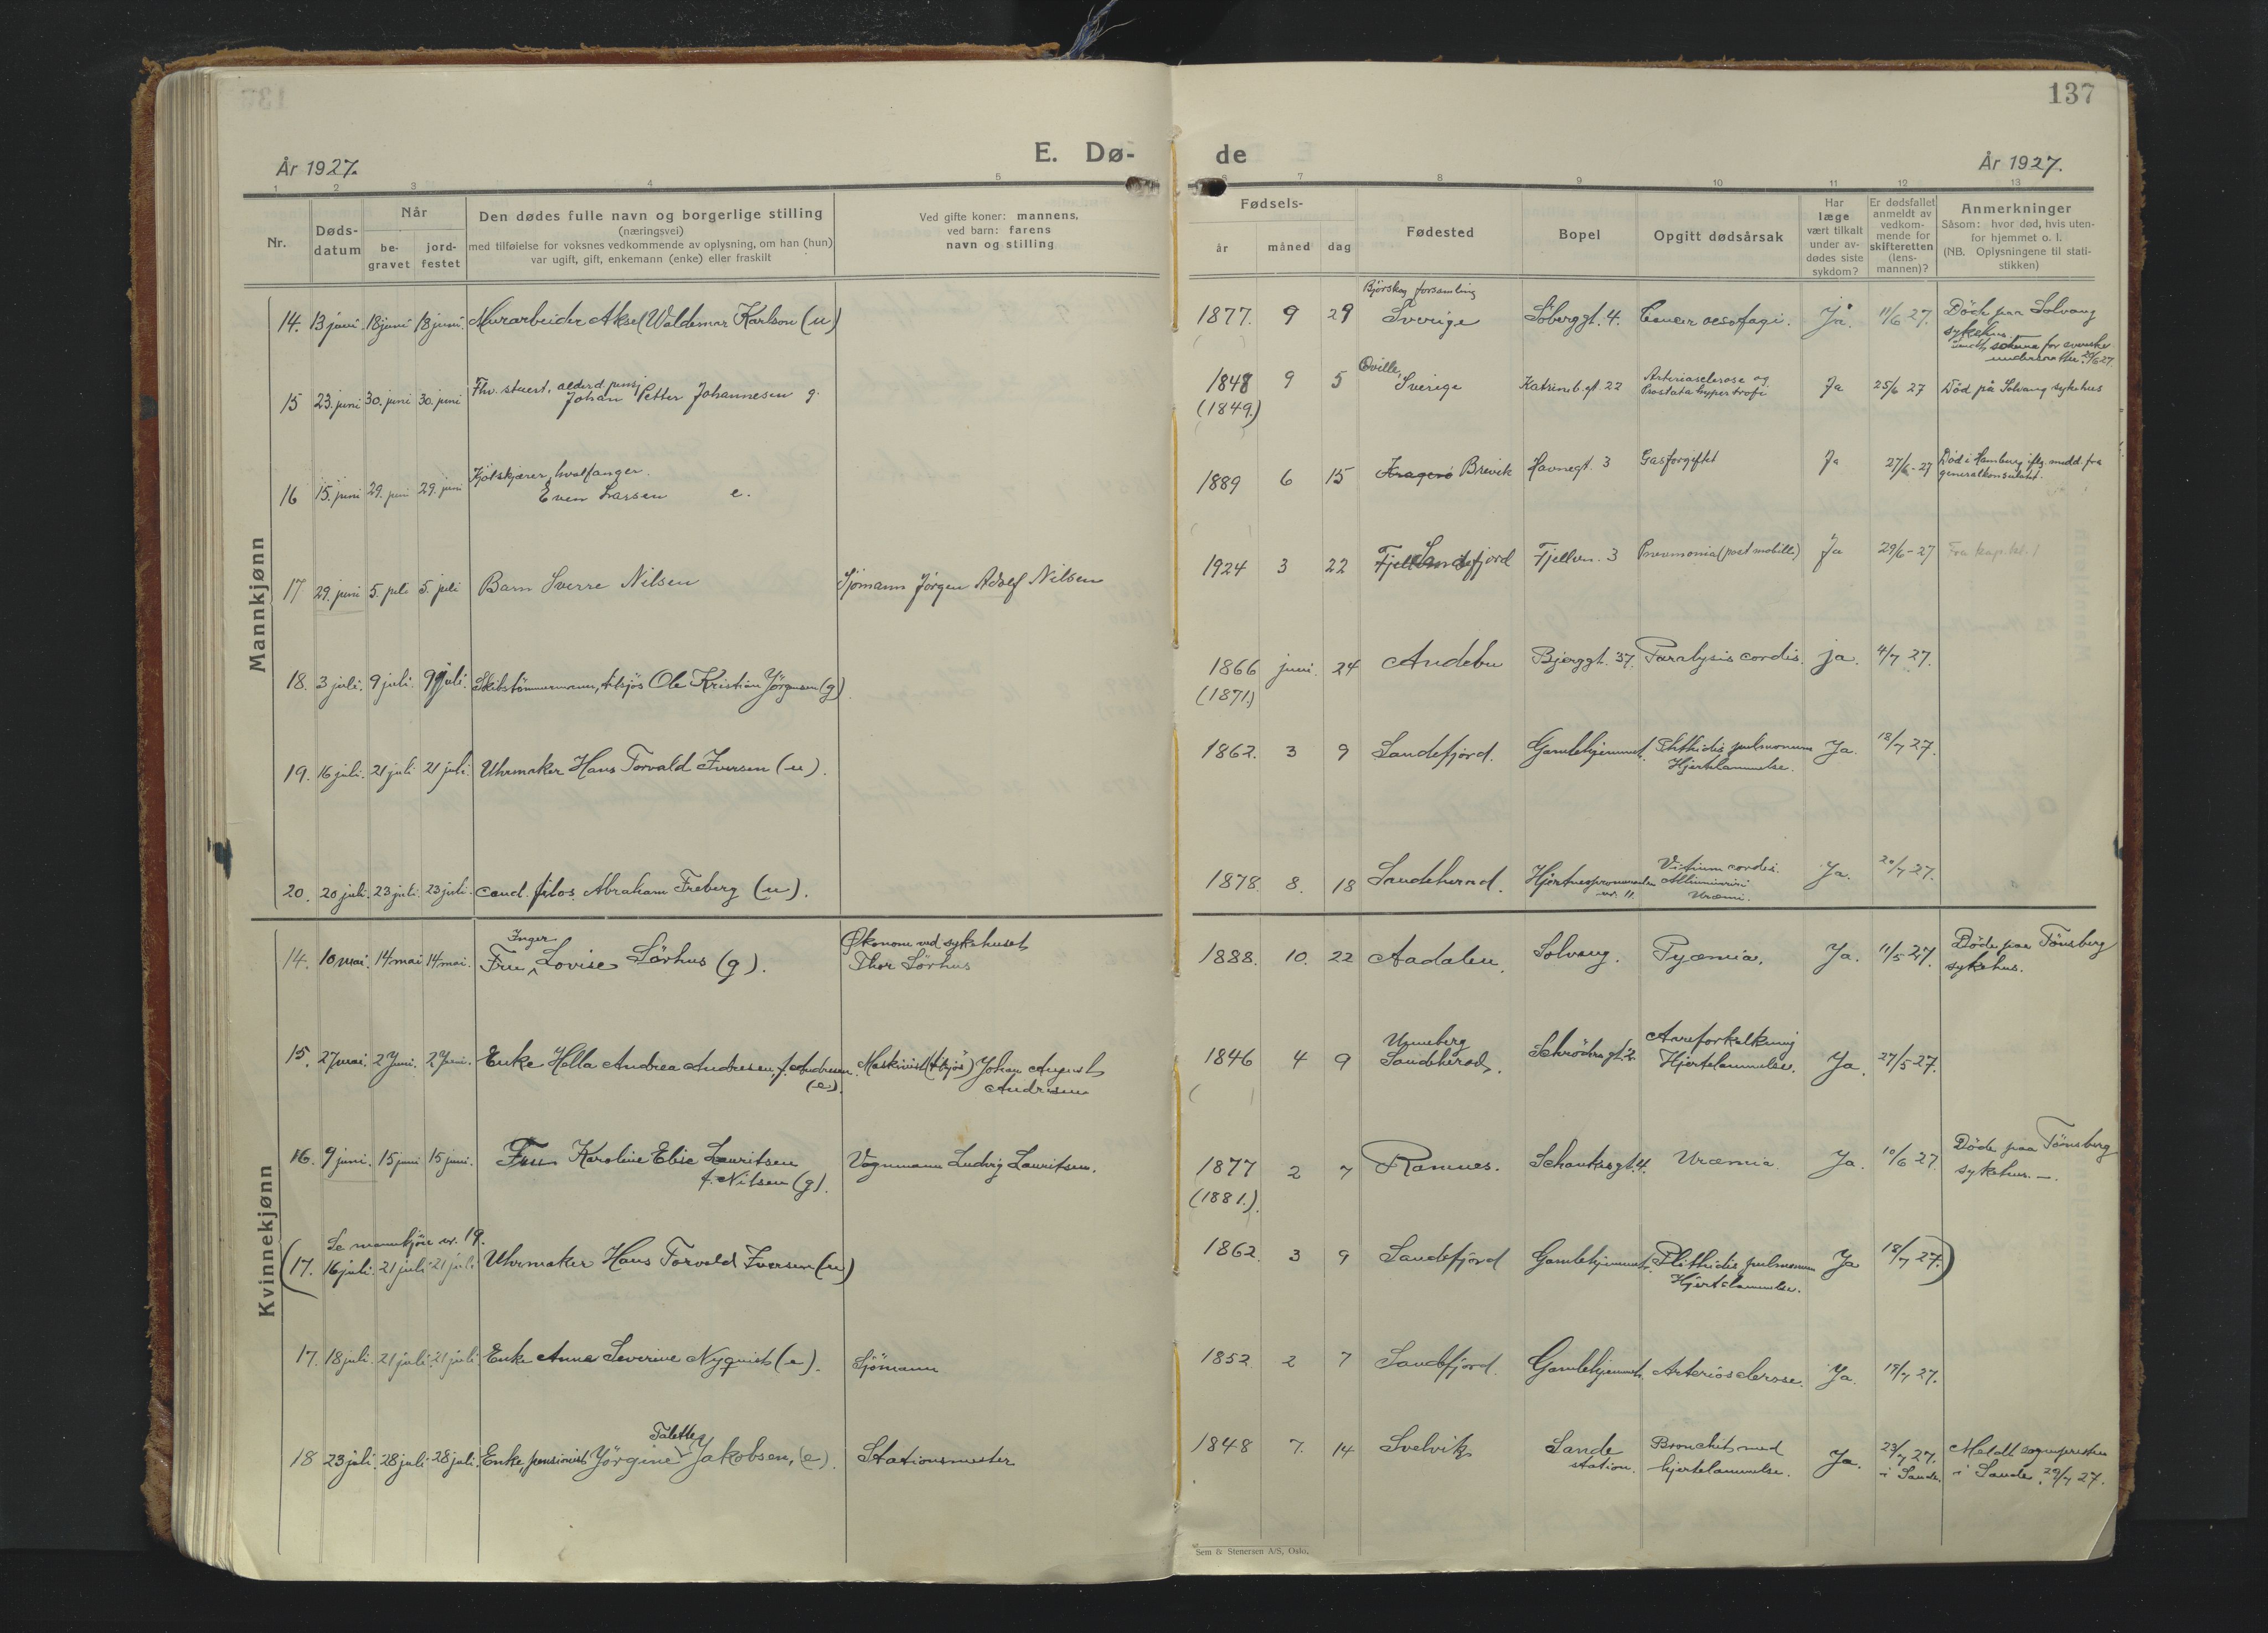 137
E. Dø- de
År 1927. År 1927.
1 2 3 4 5 6 7 8 9 10 11 12 13
Nr.
Døds-
datum
Når
be-
gravet
jord-
festet
Den dødes fulle navn og borgerlige stilling
(næringsvei)
med tilføielse for voksnes vedkommende av oplysning, om han (hun)
var ugift, gift, enkemann (enke) eller fraskilt
Ved gifte koner: mannens,
ved barn: farens
navn og stilling
Fødsels-
år måned dag
Fødested
Bopel
Opgitt dødsårsak
Har
læge
vært tilkalt
under av-
dødes siste
sykdom?
Er dødsfallet
anmeldt av
vedkom-
mende for
skifteretten
(lens-
mannen)?
Anmerkninger
Såsom: hvor død, hvis uten-
for hjemmet o. l.
(NB. Oplysningene til stati-
stikken)
Mannkjønn
Björskog forsamling
14. 13 juni. 18 juni 18 juni. Murarbeider Aksel Waldemar Karlson (u) 1877. 9 29 Sverige Söberggt. 4. Cancer oesofagi. Ja. 11/6 27. Döde paa Solvang
sykehus.
for svenske
undersaatter 29/6 27
Qville,
15 23. juni 30. juni 30. juni Fhv. stuert, alderd. pensj. 1848 9 5 Sverige Katrineb. gt. 22 Arteriosclerose og Ja 25/6 27 Död på Solvang sykehus
Johan Petter Johannesen g. (1849.) Prostatahypertrofi
16 15. juni 29. juni 29. juni Kjötskjærer, hvalfanger. 1889 6 15 Kragerö Brevik Havnegt. 3 Gasforgiftet Ja 27/6-27 Död i Hamburg iflg. medd. fra
Even Larsen e. generalkonsulatet.
17 29. juni 5. juli 5. juli Barn Sverre Nilsen Sjömann Jörgen Adolf Nilsen 1924 3 22 Sandefjord Fjellvn. 3 Pneumonia (post mobilli) Ja 29/6-27 Fra kap. kl. 1
18. 3 juli. 9 juli. 9 juli. Skibstömmermann, tilsjös Ole Kristian Jörgensen (g) 1866 juni. 24 Andebu Bjerggt. 37. Paralysis cordis. ja. 4/7 27.
(1871.)
19. 16 juli. 21 juli 21 juli. Uhrmaker Hans Torvald Iversen (u). 1862. 3 9 Sandefjord. Gamlehjemmet. Phthisis pulmonum Ja. 18/7 27.
Hjertelammelse.
20. 20 juli. 23 juli. 23 juli. Cand. filos. Abraham Freberg (u). 1878. 8. 18 Sandeherred. Hjertnespromenaden Vitium cordis. Ja. 20/7 27.
nr. 11. Albuminuri
Uræmi.
Kvinnekjønn
Inger
14. 10 mai. 14 mai 14 mai. Fru Lovise Sörhus (g). Økonom ved sykehuset 1888. 10. 22 Aadalen. Solvang. Pyæmia. Ja. 11/5 27. Döde paa Tönsberg
Thor Sörhus sykehus.
Unneberg
15. 27 mai. 2 Juni. 2 Juni. Enke Hella Andrea Andresen, f. Andresen. Maskinist (tilsjös) Johan August 1846 4 9 Sandeherred. Schrödersgt. 2. Aareforkalkning Ja. 27/5 27.
(e). Andresen Hjertelammelse.
16. 9 juni. 15 juni 15 juni. Fru Karoline Elise Lauritsen Vognmann Ludvig Lauritsen. 1877 2 7 Ramnes. Schankesgt. 4. Uræmia. Ja. 10/6 27. Döde paa Tönsberg
f. Nilsen (g). (1881.) sykehus. —.
Se mannkjön nr. 19.
(17. 16 juli. 21 juli 21 juli Uhrmaker Hans Torvald Iversen (u) 1862 3 9 Sandefjord Gamlehjemmet. Phthisis pulmonum Ja 18/7 27.)
Hjertelammelse.
17. 18 juli. 21 juli. 21 juli Enke Anne Severine Nyquist (e). Sjömann 1852 2 7 Sandefjord. Gamlehjemmet. Arteriosclerose. Ja. 19/7 27.
Talette
18 23 juli. 28 juli 28 juli. Enke, pensionist Jörgine Jakobsen, (e). Stationsmester 1848 7. 14 Svelvik Sande Bronchit med Ja. 23/7 27. Meldt sognepresten
station. hjertelammelse. i Sande. i Sande 29/7 27.
Sem & Stenersen A/S, Oslo.